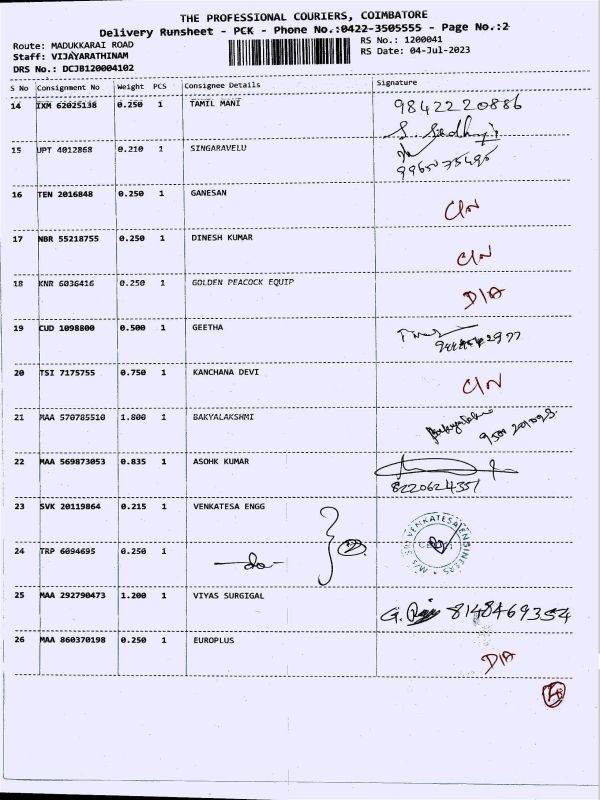 THE PROFESSIONAL COURIERS, COIMBATORE
Delivery Runsheet - PCK - Phone No.:0422-3505555 - Page No.:2
Route: MADUKKARAI ROAD
Staff: VIJAYARATHINAM
DRS No.: DCJB120004102
RS No.: 1200041
RS Date: 04-Jul-2023
S No Consignment No Weight PCS Consignee Details Signature
14 IXM 62025138 0.250 1 TAMIL MANI 9842220886
15 UPT 4012868 0.210 1 SINGARAVELU
16 TEN 2016848 0.250 1 GANESAN C/N
17 NBR 55218755 0.250 1 DINESH KUMAR C/N
18 KNR 6036416 0.250 1 GOLDEN PEACOCK EQUIP D/A
19 CUD 1098800 0.500 1 GEETHA
20 TSI 7175755 0.750 1 KANCHANA DEVI C/N
21 MAA 570785510 1.800 1 BAKYALAKSHMI
22 MAA 569873053 0.835 1 ASOHK KUMAR
8220624351
23 SVK 20119864 0.215 1 VENKATESA ENGG
24 TRP 6094695 0.250 1 -do- 2
M/S SRI VENKATESA ENGINEERS
25 MAA 292790473 1.200 1 VIYAS SURGIGAL G. 8148469354
26 MAA 860370198 0.250 1 EUROPLUS D/A